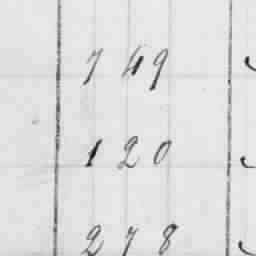 749
120
278